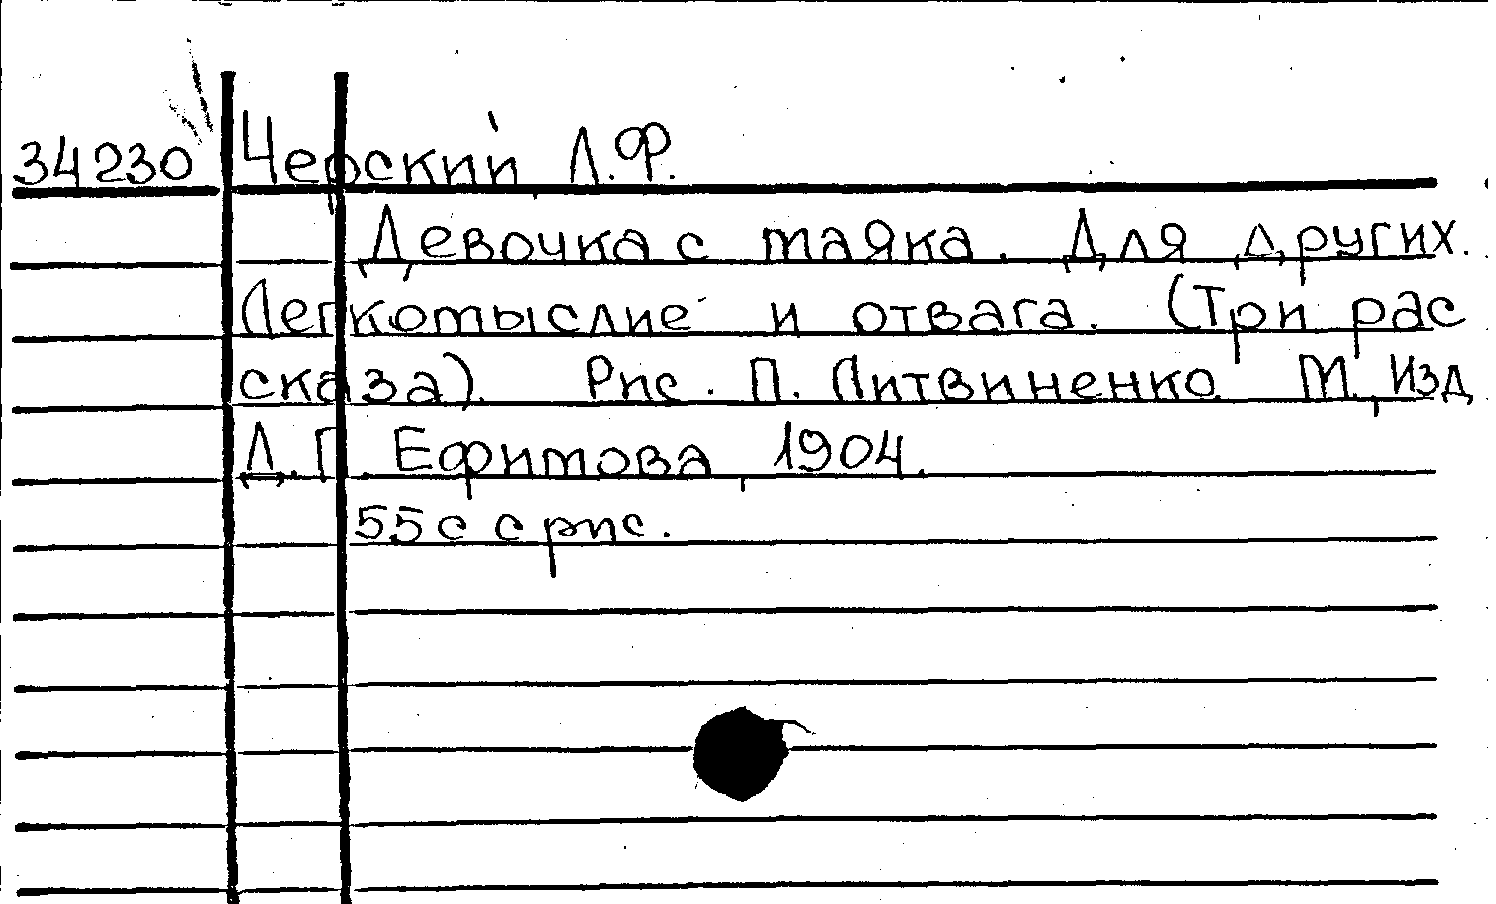 34230 Черский Л.Ф.
Девочка с маяка. Для других.
Легкомыслие и отвага. (Три рас
сказа). Рис. П. Литвиненко. М., Изд
Д.П. Ефимова, 1904.
55 с с рис.